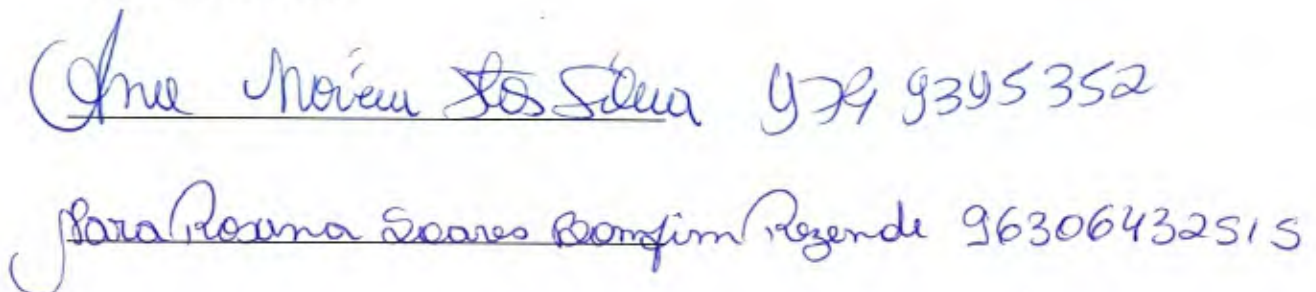 Ana Maria Stos Silva 974 9395352
Iara Rosana Soares Bomfim Rezende 96306432515